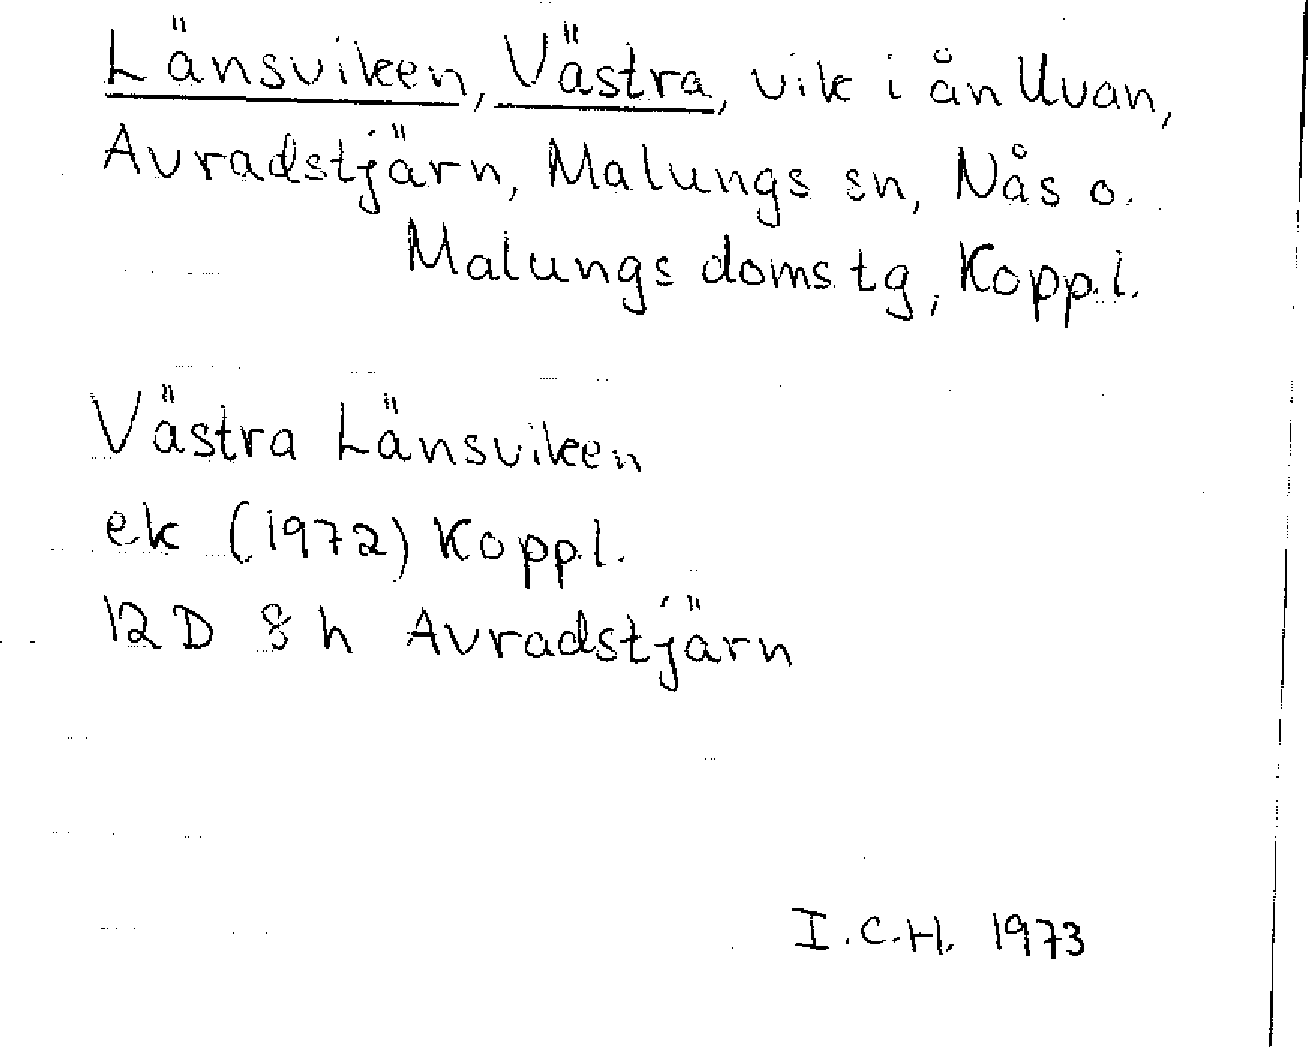 Länsviken, Västra, vik i ån Uvan,
Avradstjärn, Malungs sn, Nås o.
Malungs domstg, Kopp.l.
Västra Länsviken
ek (1972) Koppl.
12D 8h Avradstjärn
I.C.H. 1973